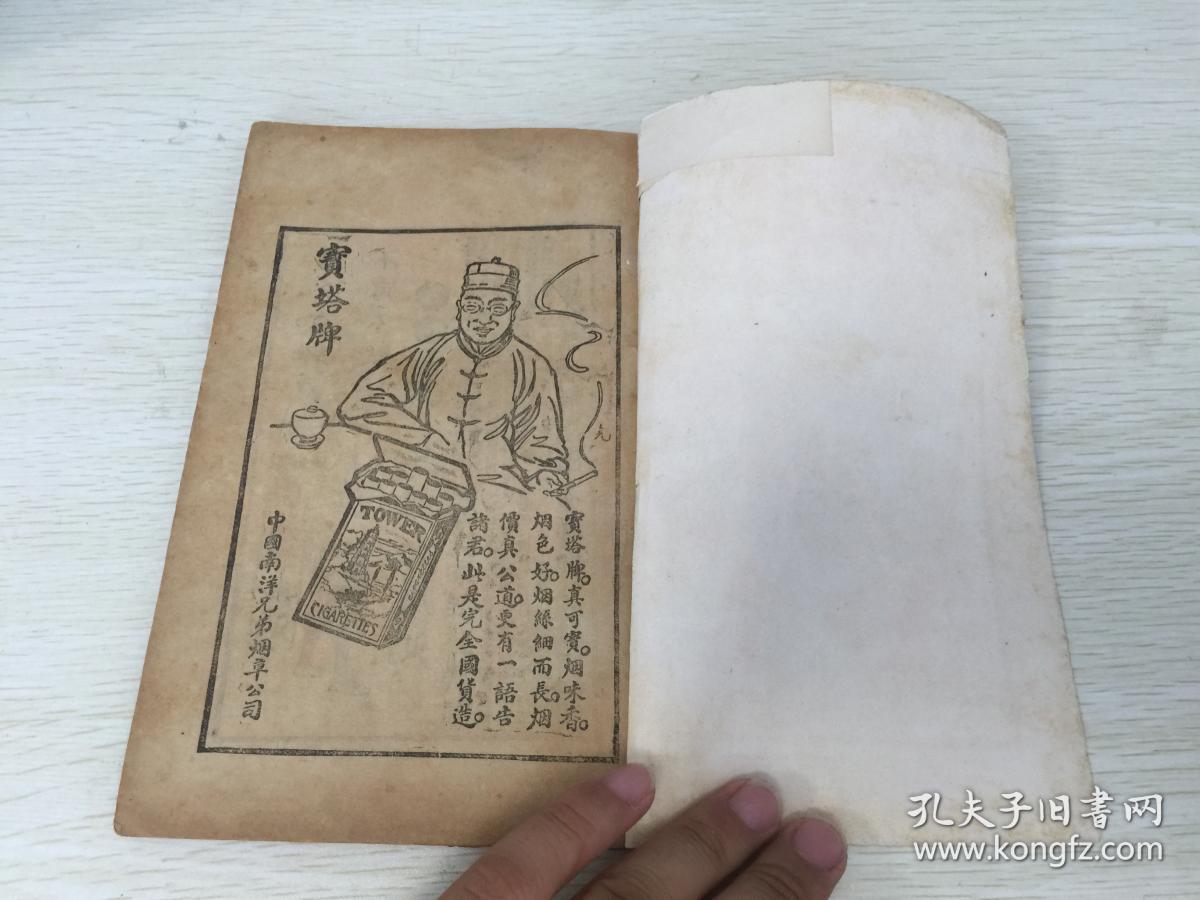 寶塔牌
寶塔牌。真可寳。烟味香。
烟色好。烟絲細而長。烟
價真公道。更有一語告
諸君。此是完全國貨造。
TOWER
CIGARETTES
中國南洋兄弟烟草公司
孔夫子旧书网
www.kongfz.com